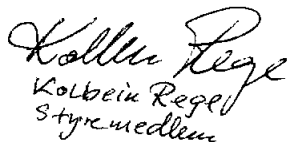 Kolbein Rege
Kolbein Rege
Styremedlem